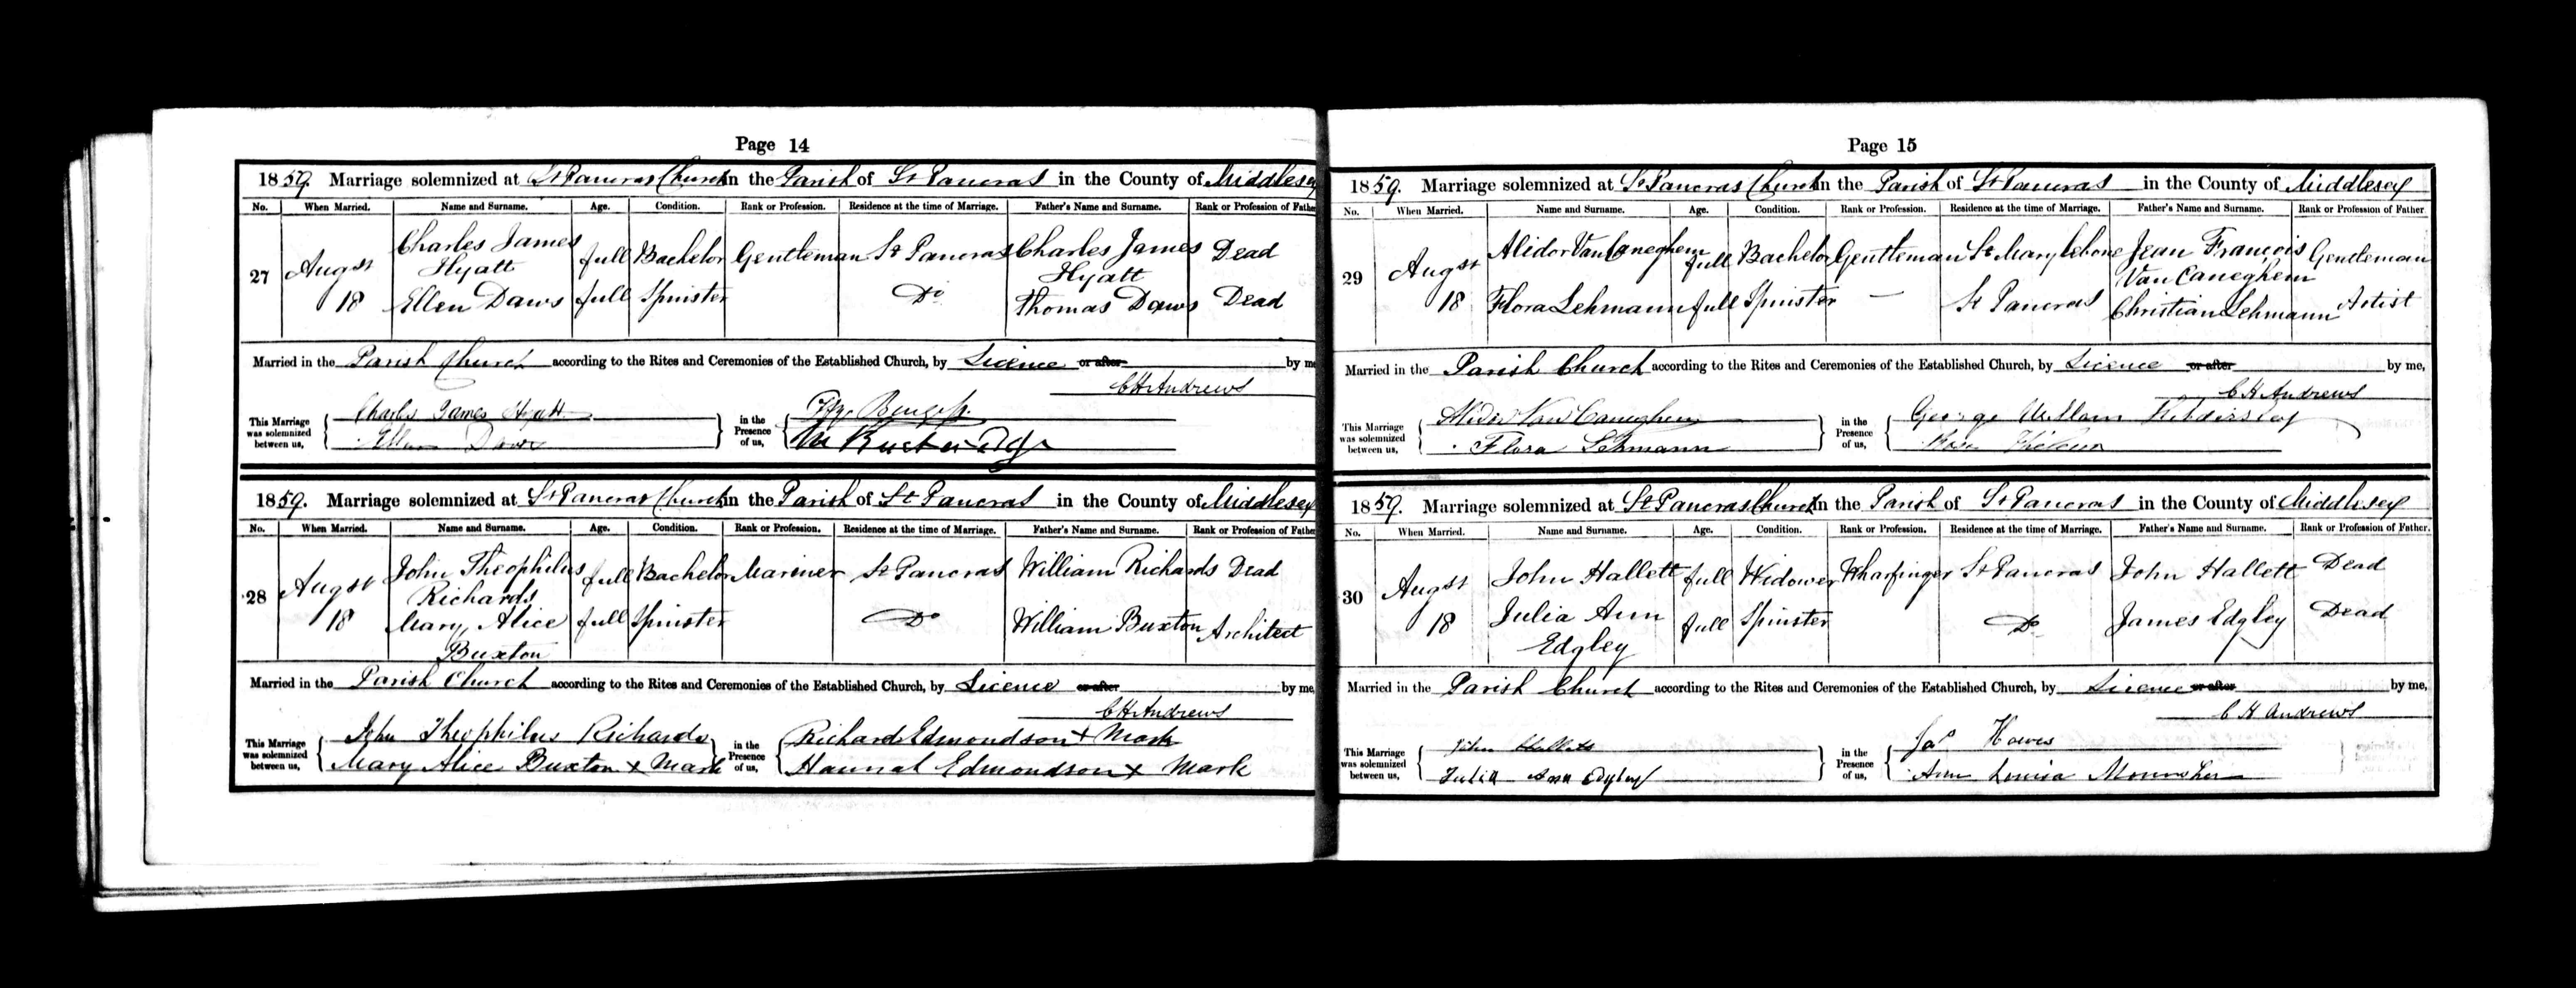 Page 14
1859. Marriage solemnized at St Pancras Church in the Parish of St Pancras in the County of Middlesex
No. When Married. Name and Surname. Age. Condition. Rank or Profession. Residence at the time of Marriage. Father's Name and Surname. Rank or Profession of Father
27 Augst 18 Charles James Hyatt full Bachelor Gentleman St Pancras Charles James Hyatt Dead
Ellen Daws full Spinster Do Thomas Daws Dead
Married in the Parish Church according to the Rites and Ceremonies of the Established Church, by Licence or after by me
C H Andrews
This Marriage was solemnized between us, Charles James Hyatt
Ellen Daws
in the Presence of us,
1859. Marriage solemnized at St Pancras Church in the Parish of St Pancras in the County of Middlesex
No. When Married. Name and Surname. Age. Condition. Rank or Profession. Residence at the time of Marriage. Father's Name and Surname. Rank or Profession of Father
28 Augst 18 John Theophilus Richards full Bachelor Mariner St Pancras William Richards Dead
Mary Alice Buxton full Spinster Do William Buxton Architect
Married in the Parish Church according to the Rites and Ceremonies of the Established Church, by Licence or after by me,
C H Andrews
This Marriage was solemnized between us, John Theophilus Richards
Mary Alice Buxton x Mark
in the Presence of us, Richard Edmondson x Mark
Hannah Edmondson x Mark
Page 15
1859. Marriage solemnized at St Pancras Church in the Parish of St Pancras in the County of Middlesex
No. When Married. Name and Surname. Age. Condition. Rank or Profession. Residence at the time of Marriage. Father's Name and Surname. Rank or Profession of Father
29 Augst 18 Alidor Van Caneghem full Bachelor Gentleman St Marylebone Jean François Van Caneghem Gentleman
Flora Lehmann full Spinster — St Pancras Christian Lehmann Artist
Married in the Parish Church according to the Rites and Ceremonies of the Established Church, by Licence or after by me,
C H Andrews
This Marriage was solemnized between us, Alidor Van Caneghem
Flora Lehmann
in the Presence of us, George William
1859. Marriage solemnized at St Pancras Church in the Parish of St Pancras in the County of Middlesex
No. When Married. Name and Surname. Age. Condition. Rank or Profession. Residence at the time of Marriage. Father's Name and Surname. Rank or Profession of Father.
30 Augst 18 John Hallett full Widower Wharfinger St Pancras John Hallett Dead
Julia Ann Edgley full Spinster Do James Edgley Dead
Married in the Parish Church according to the Rites and Ceremonies of the Established Church, by Licence or after by me,
C H Andrews
This Marriage was solemnized between us, John Hallett
Julia Ann Edgley
in the Presence of us, Jas Howes
Ann Louisa